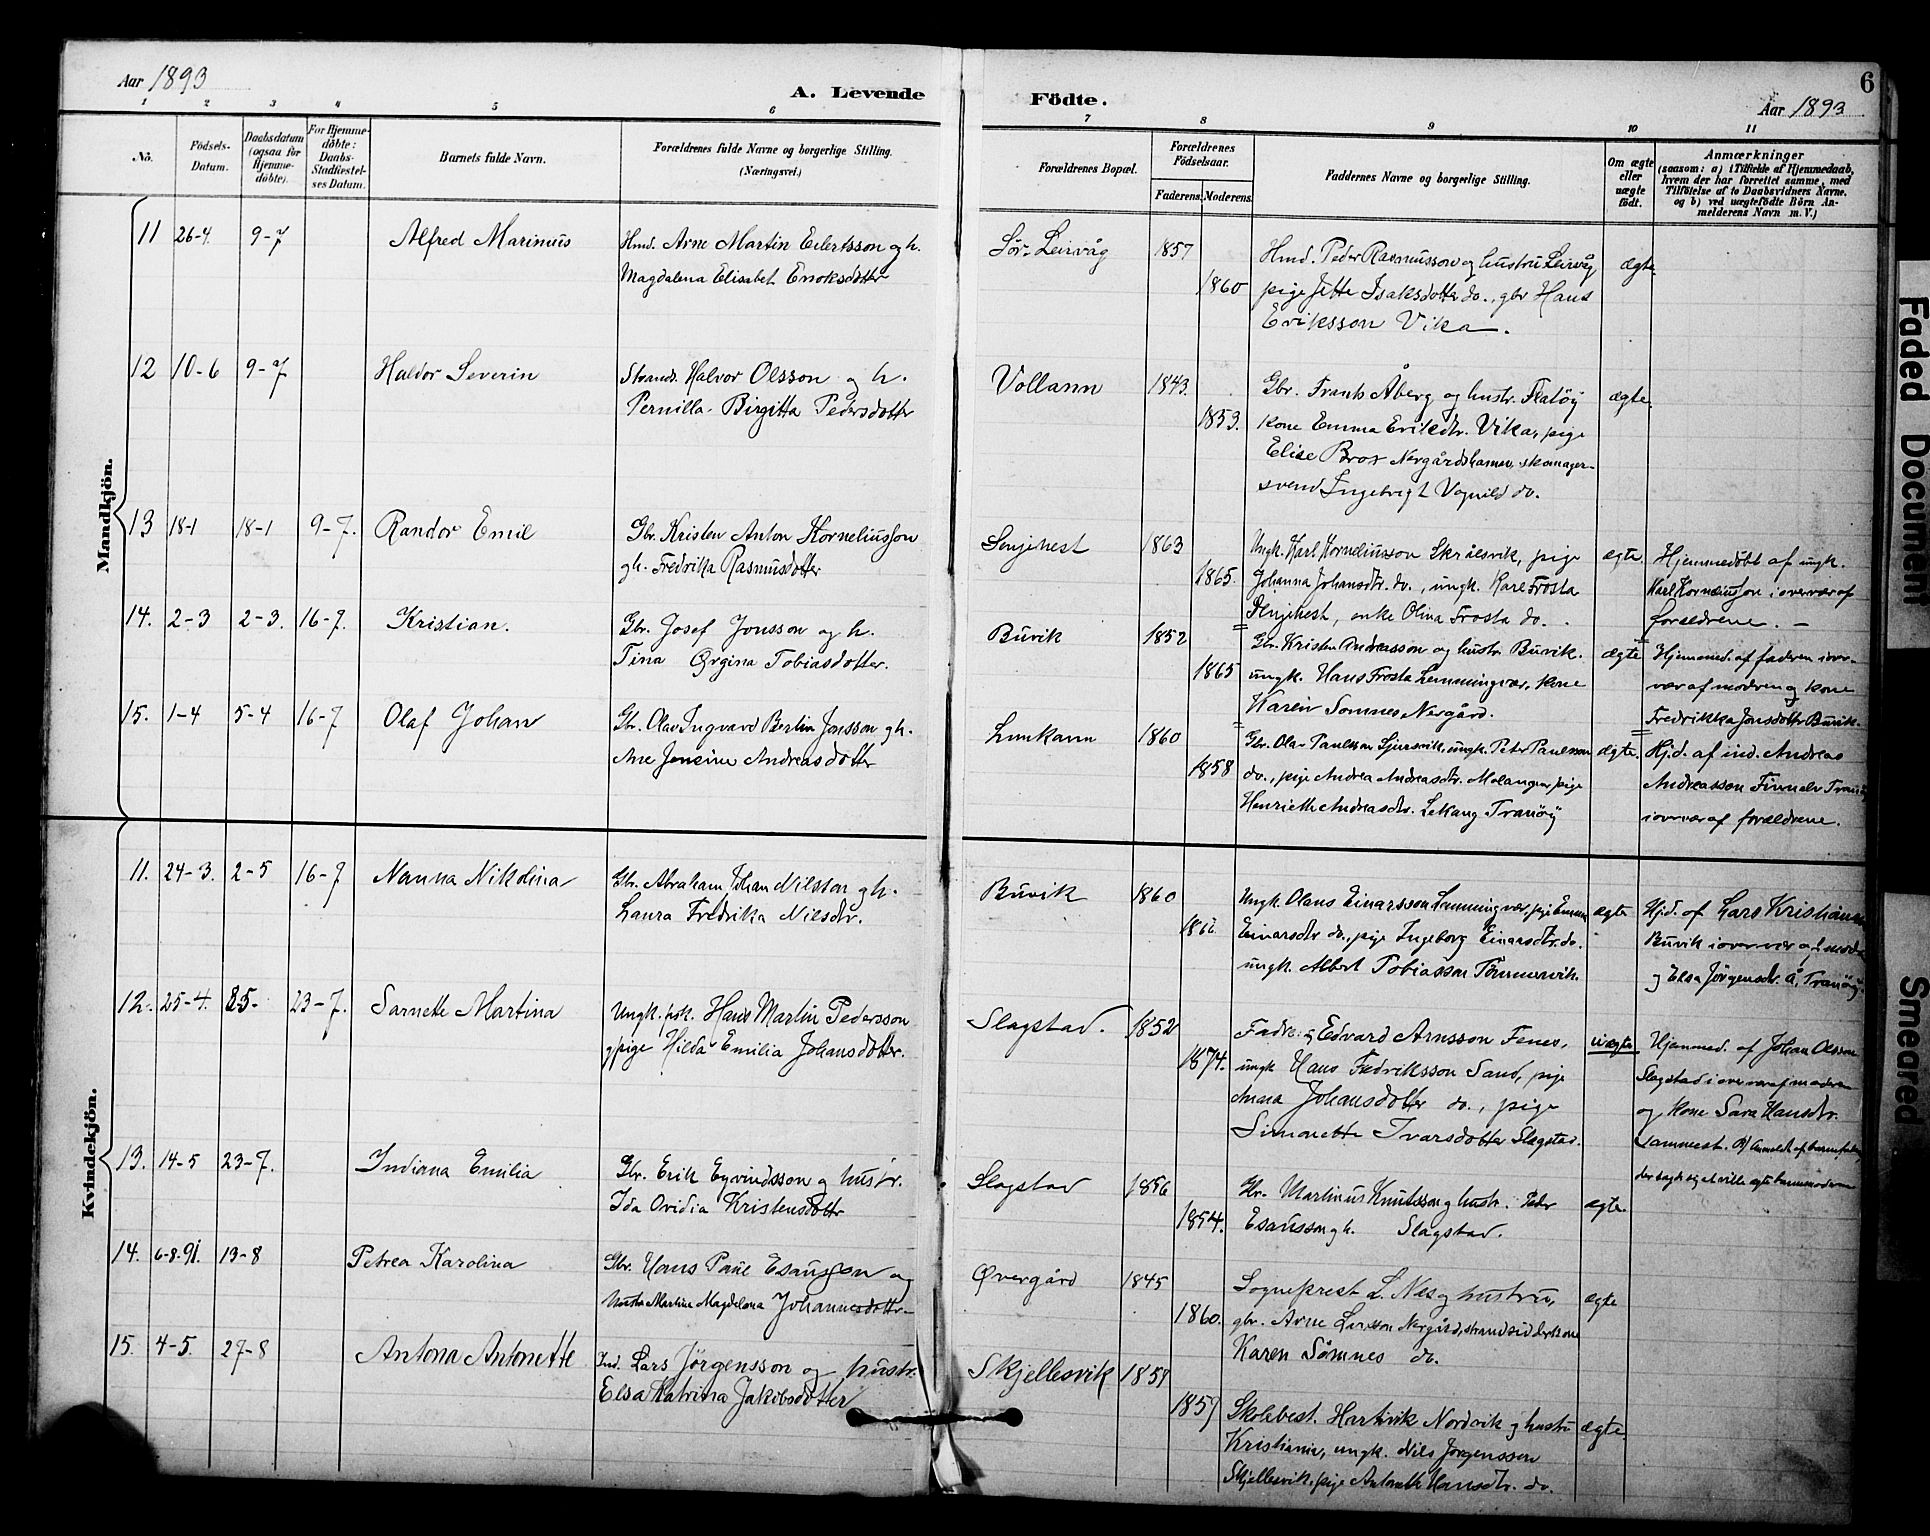 Aar 1893
A. Levende Födte.
Aar 1893
6
1 2 3 4 5 6 7 8 9 10 11
No.
Födsels-Datum.
Daabsdatum (ogsaa for Hjemme-döbte).
For Hjemme-döbte: Daabs-Stadfæstel-ses Datum.
Barnets fulde Navn.
Forældrenes fulde Navne og borgerlige Stilling. (Næringsvei.)
Forældrenes Bopæl.
Forældrenes Födselsaar.
Faderens. Moderens.
Faddernes Navne og borgerlige Stilling.
Om ægte eller uægte födt.
Anmærkninger
(saasom: a) i Tilfælde af Hjemmedaab,
hvem der har forrettet samme, med
Tilföielse af to Daabsvidners Navne.
og b) ved uægtefödte Börn An-
melderens Navn m. V.)
Mandkjön.
11 26-4. 9-7 Alfred Marinus
Hmd. Arne Martin Eilertsson og h.
Magdalena Elisabet Enoksdotter
Sör-Leirvåg 1857 1860
Hmd. Peder Rasmusson og hustru Leirvåg
pige Jette Isaksdotter do., gbr Hans
Eriksson Vika.
ægte
12 10-6 9-7 Haldor Severin
Strands. Halvor Olsson og h.
Pernilla Birgitta Pedersdotter
Vollann 1843. 1853.
Gbr. Frants Åberg og hustr. Flatöy
kone Emma Eriksdtr. Vika, pige
Elise Brox Nergårdshamn, skomager-
svend Ingebrigt Vognild do.
ægte.
13 18-1 18-1 9-7. Randor Emil
Gbr. Kristen Anton Korneliusson
gh. Fredrika Rasmusdotter
Senjehest 1863 1865.
Ungk. Karl Korneliusson Skrålsvik, pige
Johanna Johansdtr do., ungk. Karl Frosta
Senjehest, enke Olina Frosta do.
ægte.
Hjemmedöbt af ungk.
Karl Korneliusson i overvær af
forældrene. -
14. 2-3 2-3. 16-7. Kristian.
Gbr. Josef Jonsson og h.
Tina Ørgina Tobiasdotter.
Buvik 1852 1865
Gbr. Kristen Andreasson og hustr. Buvik.
ungk. Hans Frosta Lemmingvær, kone
Karen Somnes Nergård.
ægte
Hjemmed. af faderen i over-
vær af modren og kone
Fredrikka Jonsdotter Buvik.
15. 1-4 5-4 16-7 Olaf Johan
Gbr. Olav Ingvard Berlin Jonsson gh.
Ane Jensine Andreasdotter
Lunkann 1860 1858
Gbr. Olav Paulsson Gjersvik, ungk. Peter Paulsson
do., pige Andrea Andreasdtr. Malangen, pige
Henriette Andreasdtr. Lekang Tranöy
ægte.
Hj.d. af ind. Andreas
Andreasson Finnelv Tranöy
i overvær af forældrene.
Kvindekjön.
11. 24-3. 2-5 16-7 Nanna Nikolina
Gbr. Abraham Johan Nilsson gh.
Laura Fredrika Nilsdtr.
Buvik 1860
Ungk. Olaus Einarsson Lemmingvær, pige Emma
Einarsdtr do., pige Ingeborg Einarsdtr. do.
ungk. Albert Tobiasson Tömmervik.
ægte
Hjd. af Lars Kristians
Buvik i overvær af moder
og Elsa Jörgensdtr Å, Tranöy
12. 25-4. 25- 23-7. Sarnette Martina
Ungk. fisk. Hans Martin Pedersson
gpige Hilda Emilia Johansdotter.
Slagstad. 1852 1874.
Fadr. og Edvard Arnsson Fenes,
ungk Hans Fredriksson Sand, pige
Anna Johansdotter do., pige
Simonette Ivarsdotter Slagstad.
uægte
Hjemmed. af Johan Olsson
Slagstad i overvær af moderen
og kone Sara Hansdtr.
sammest. Anmeldt af barnefader
der sagde sig at ville ægte barnemoderen
13. 14-5 23-7. Indiana Emilia
Gbr. Erik Eyvindsson og hustr.
Ida Ovidia Kristensdotter
Slagstad 1856 1854.
Gbr. Martinus Knutsson g hustr. Peder
Esausson gh. Slagstad.
ægte
14. 6-8.91. 13-8 Petrea Karolina
Gbr. Hans Paul Esausson og
hustru Martine Magdelena Johannesdottr
Øvergård 1845 1860.
Sogneprest L. Næs g hustru,
gbr. Arne Larsson Nergård, strandsidderkone
Karen Sömnes do.
ægte
15. 4-5. 27-8 Antona Antonette
Ind. Lars Jörgensson og hustr.
Elsa Katrina Jakobsdotter
Skjellesvik 1859 1859
Skolebest. Hartvik Nordvik g hustru
Kristiania, ungk. Nils Jörgensson
Skjellesvik, pige Antonette Hansdtr. do.
ægte
Faded Document
Smeared